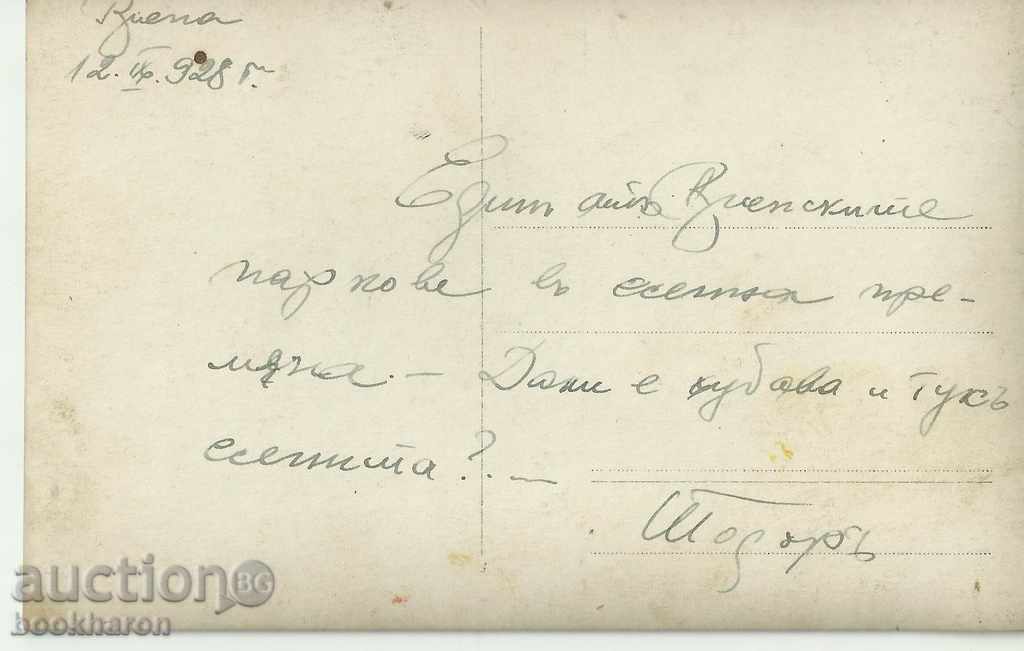 Виена
12.IX.928 г.
Единъ отъ Виенските
паркове въ есенна пре-
мяна. – Дали е хубава и тукъ
есеньта? –
Тодоръ
auction BG
bookharon